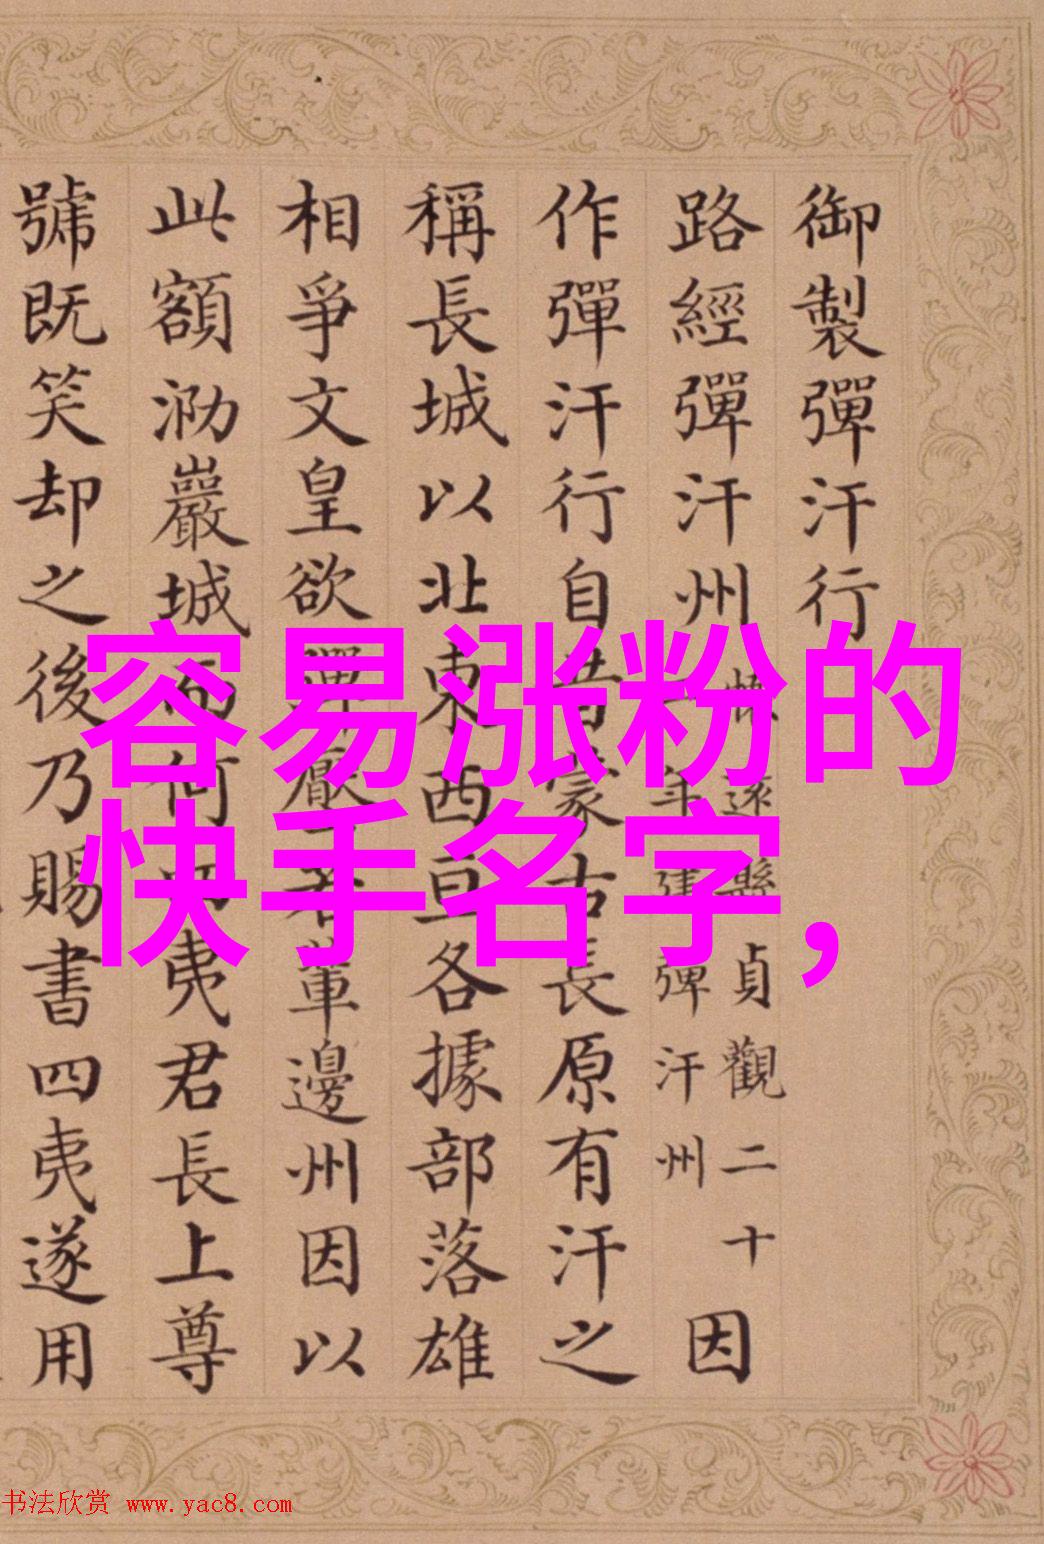 御製彈汗行
路經彈汗州
懷遠縣貞觀二十
二年建彈汗州
因
作彈汗行自昔蒙古長原有汗之
稱長城以北東西亘各據部落雄
相爭文皇欲渾嚴君單邊州因以
此額泐巖城而何四夷君長上尊
號既笑却之後乃賜書四夷遂用
容易涨粉的
快手名字,
书法欣赏 www.yac8.com